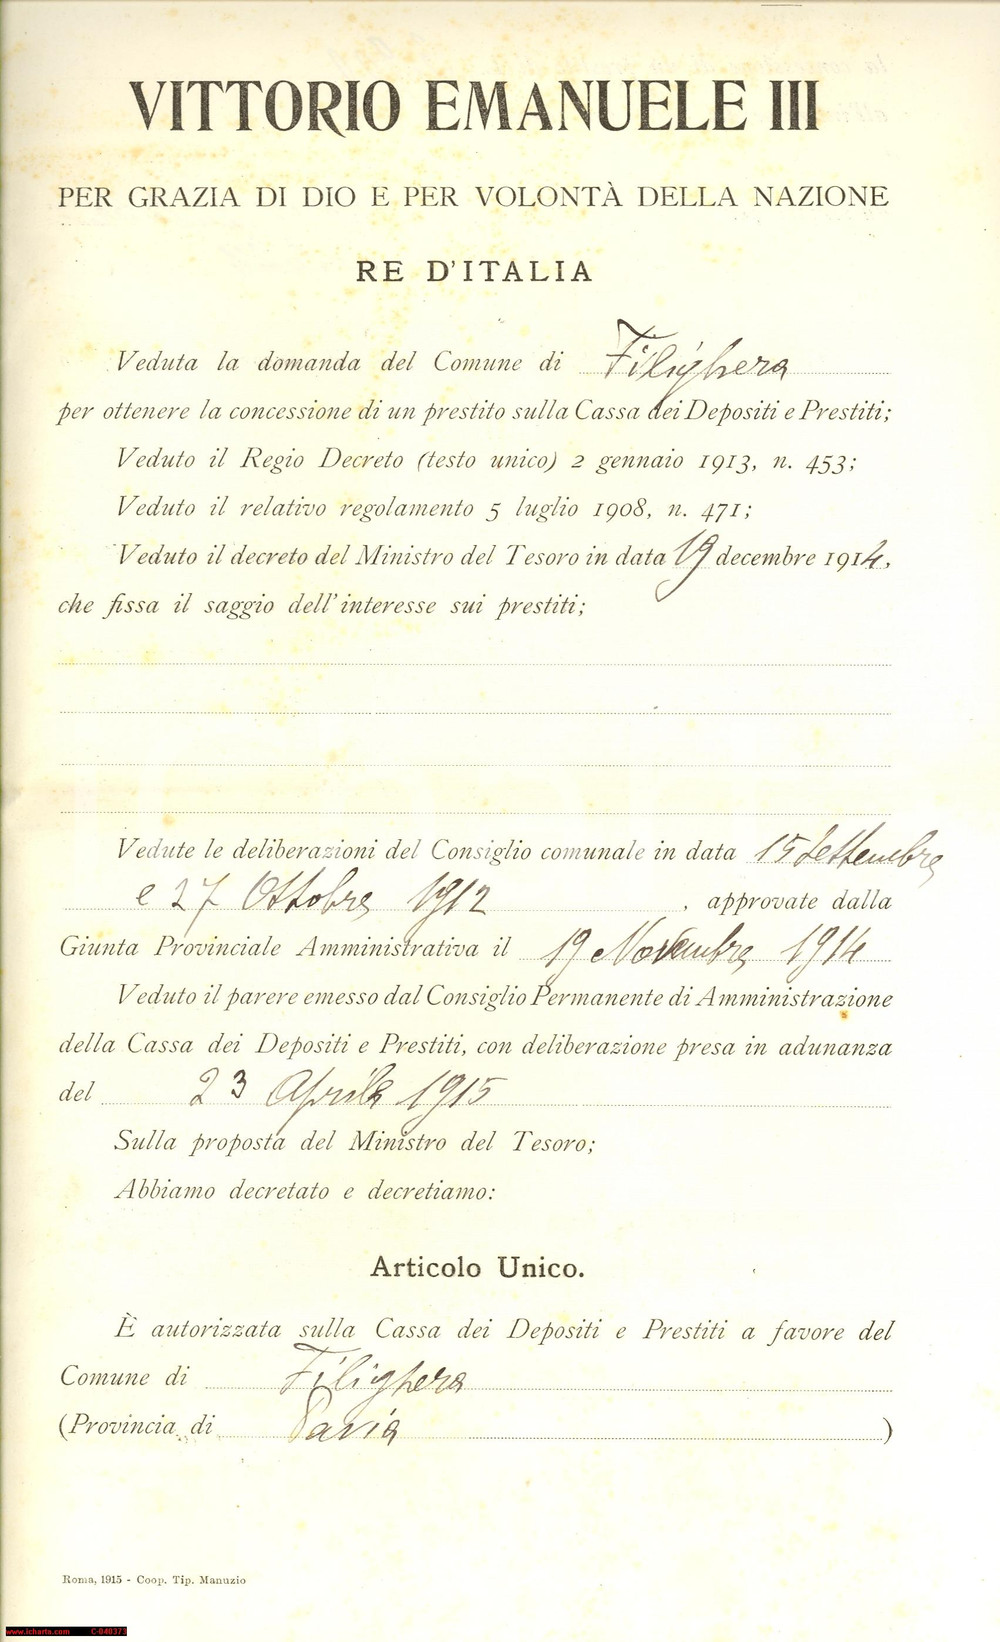 VITTORIO EMANUELE III
PER GRAZIA DI DIO E PER VOLONTÀ DELLA NAZIONE
RE D'ITALIA
Veduta la domanda del Comune di Filighera
per ottenere la concessione di un prestito sulla Cassa dei Depositi e Prestiti;
Veduto il Regio Decreto (testo unico) 2 gennaio 1913, n. 453;
Veduto il relativo regolamento 5 luglio 1908, n. 471;
Veduto il decreto del Ministro del Tesoro in data 19 decembre 1914,
che fissa il saggio dell'interesse sui prestiti;
Vedute le deliberazioni del Consiglio comunale in data 15 Settembre
e 27 Ottobre 1912, approvate dalla
Giunta Provinciale Amministrativa il 19 Novembre 1914
Veduto il parere emesso dal Consiglio Permanente di Amministrazione
della Cassa dei Depositi e Prestiti, con deliberazione presa in adunanza
del 23 Aprile 1915
Sulla proposta del Ministro del Tesoro;
Abbiamo decretato e decretiamo:
Articolo Unico.
È autorizzata sulla Cassa dei Depositi e Prestiti a favore del
Comune di Filighera
(Provincia di Pavia)
Roma, 1915 - Coop. Tip. Manuzio
www.icharta.com C-040373